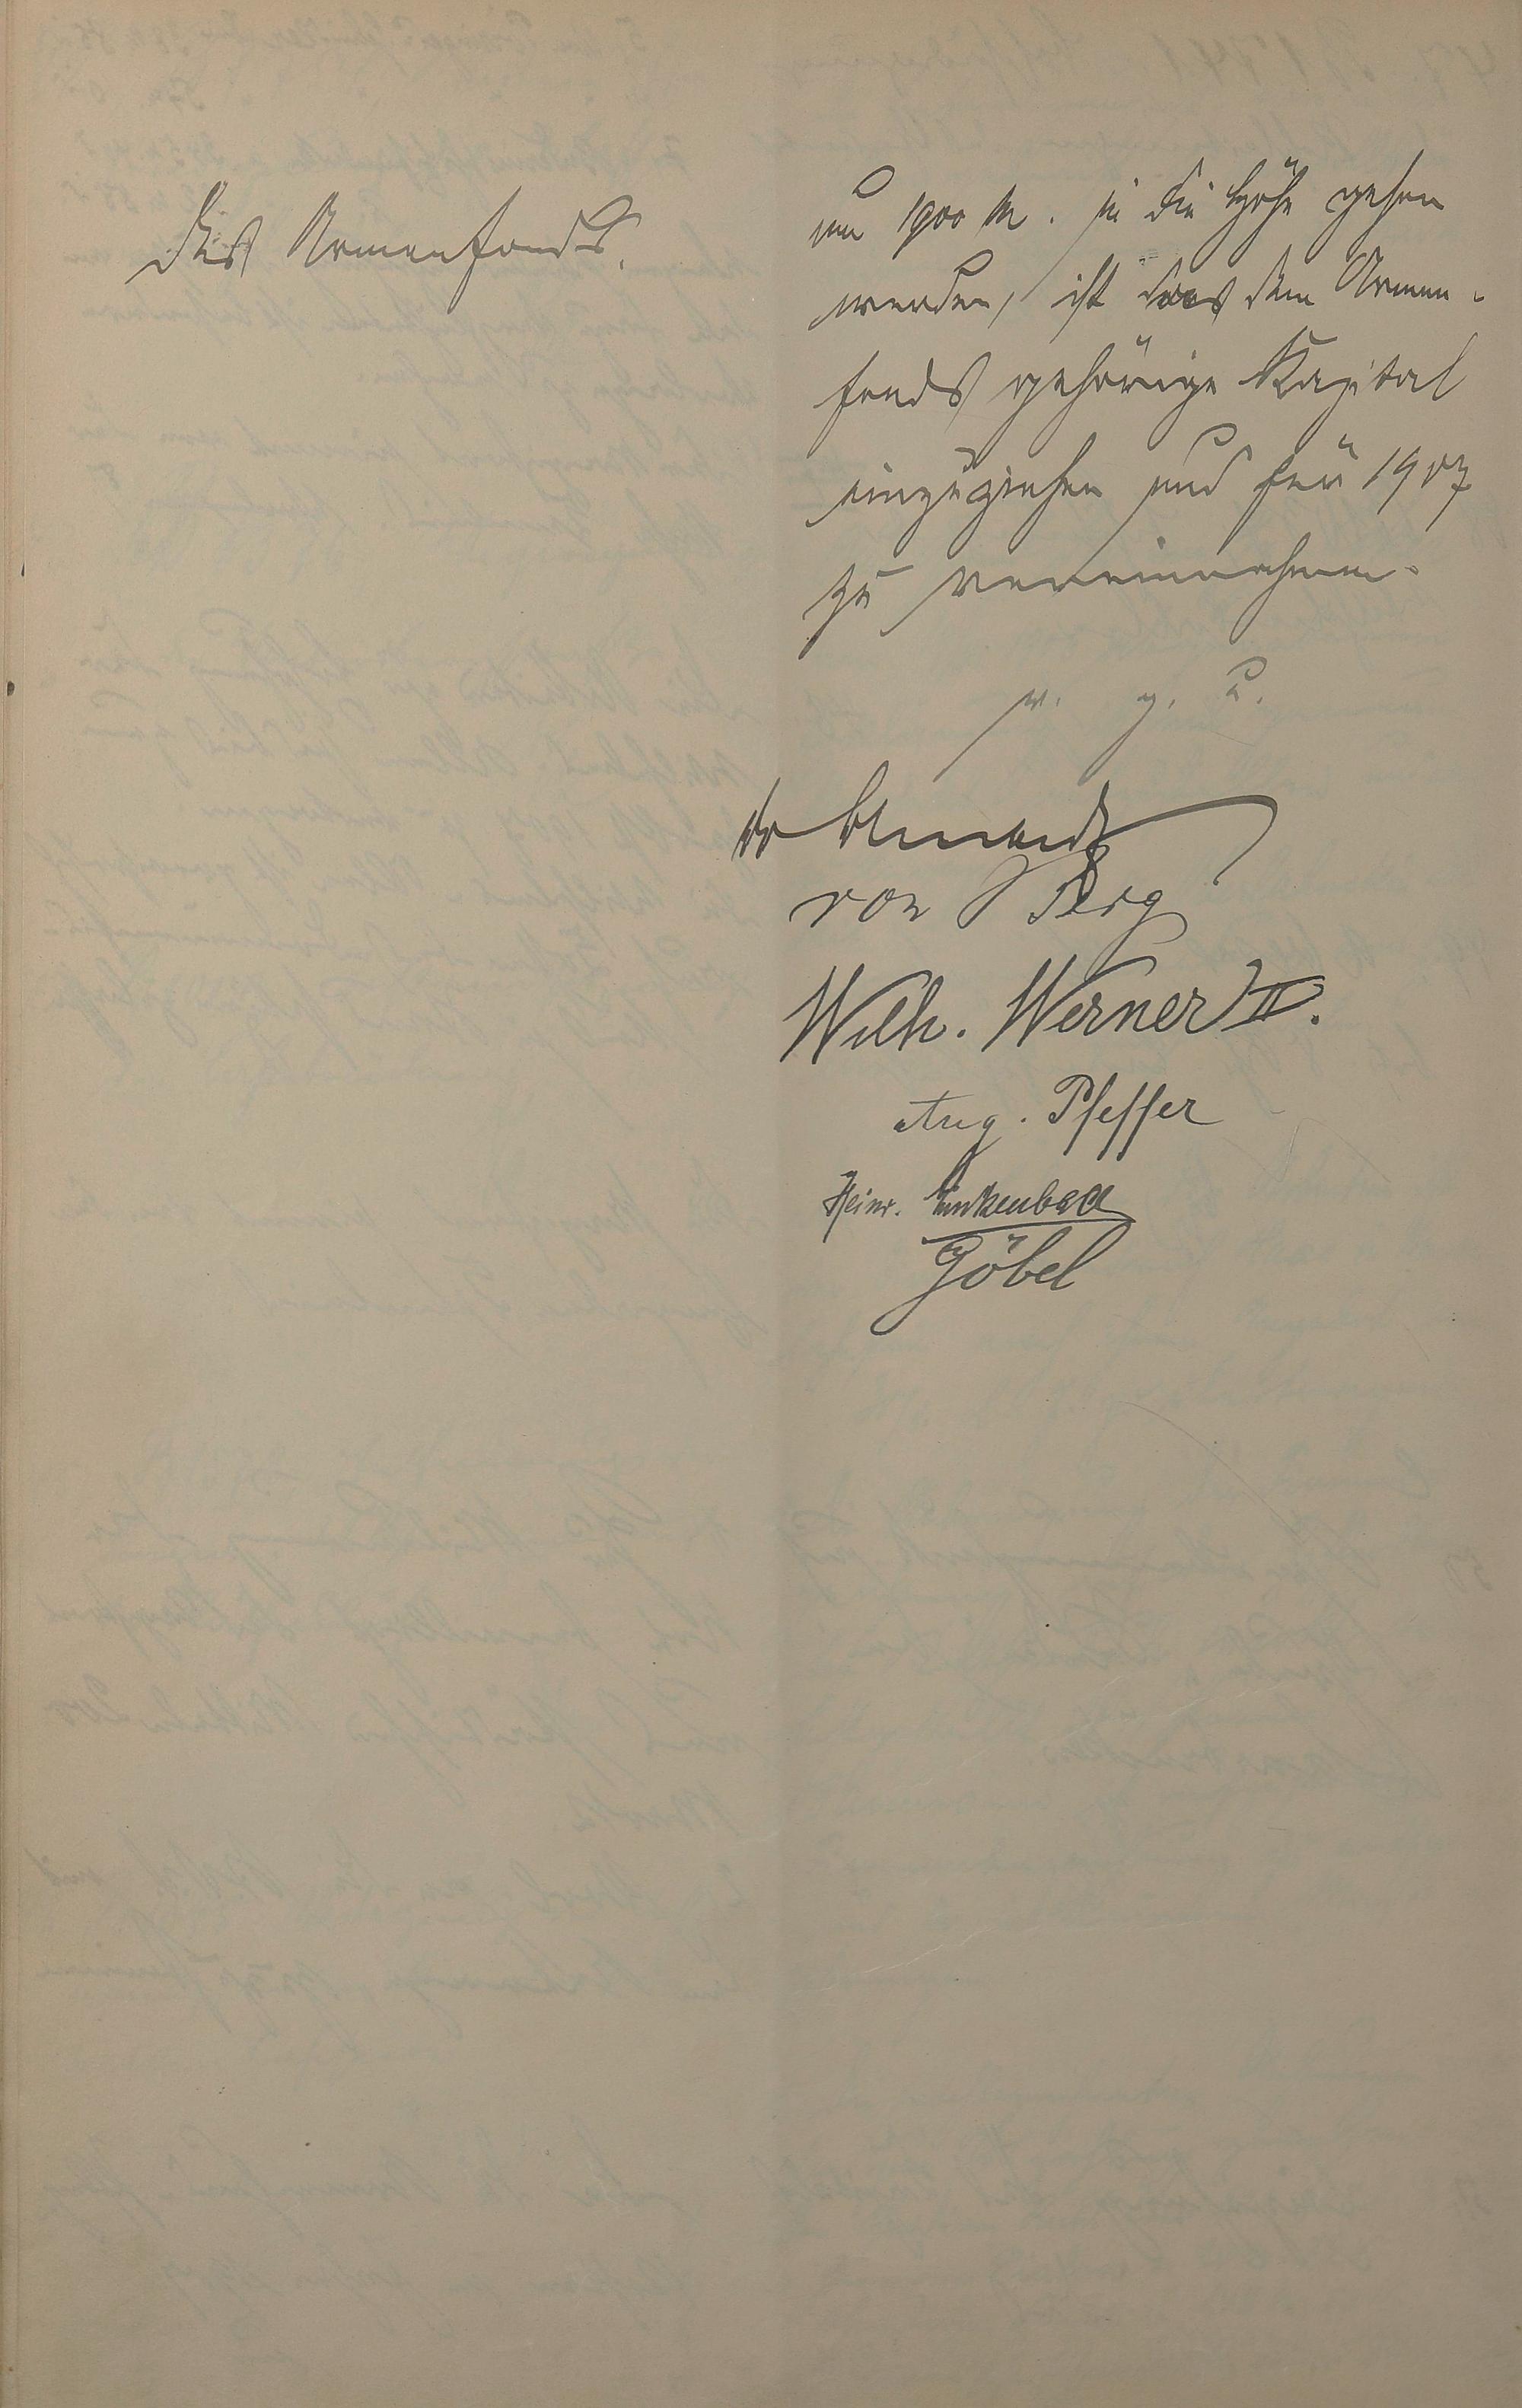 des Armenfonds.
um 1900 M. in die Höhe gehen
werden, ist das dem Armen-
fonds gehörige Kapital
einzuziehen und für 1907
zu vereinnahmen.
v. g. u.
von Berg
Wilh. Werner II.
Aug. Pfeffer
Heinr.
Göbel